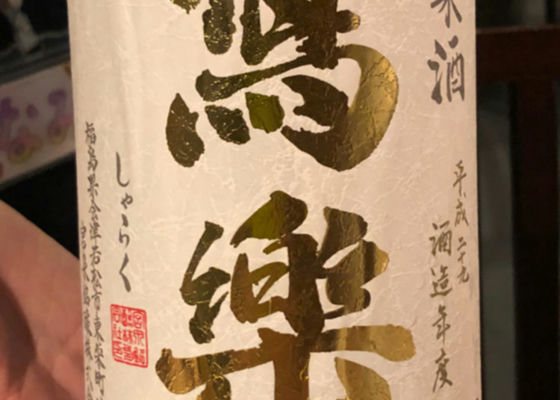 米酒
平成二十九
酒造年度
寫樂
しゃらく
福島県会津若松市東栄町
宮泉銘醸株式会